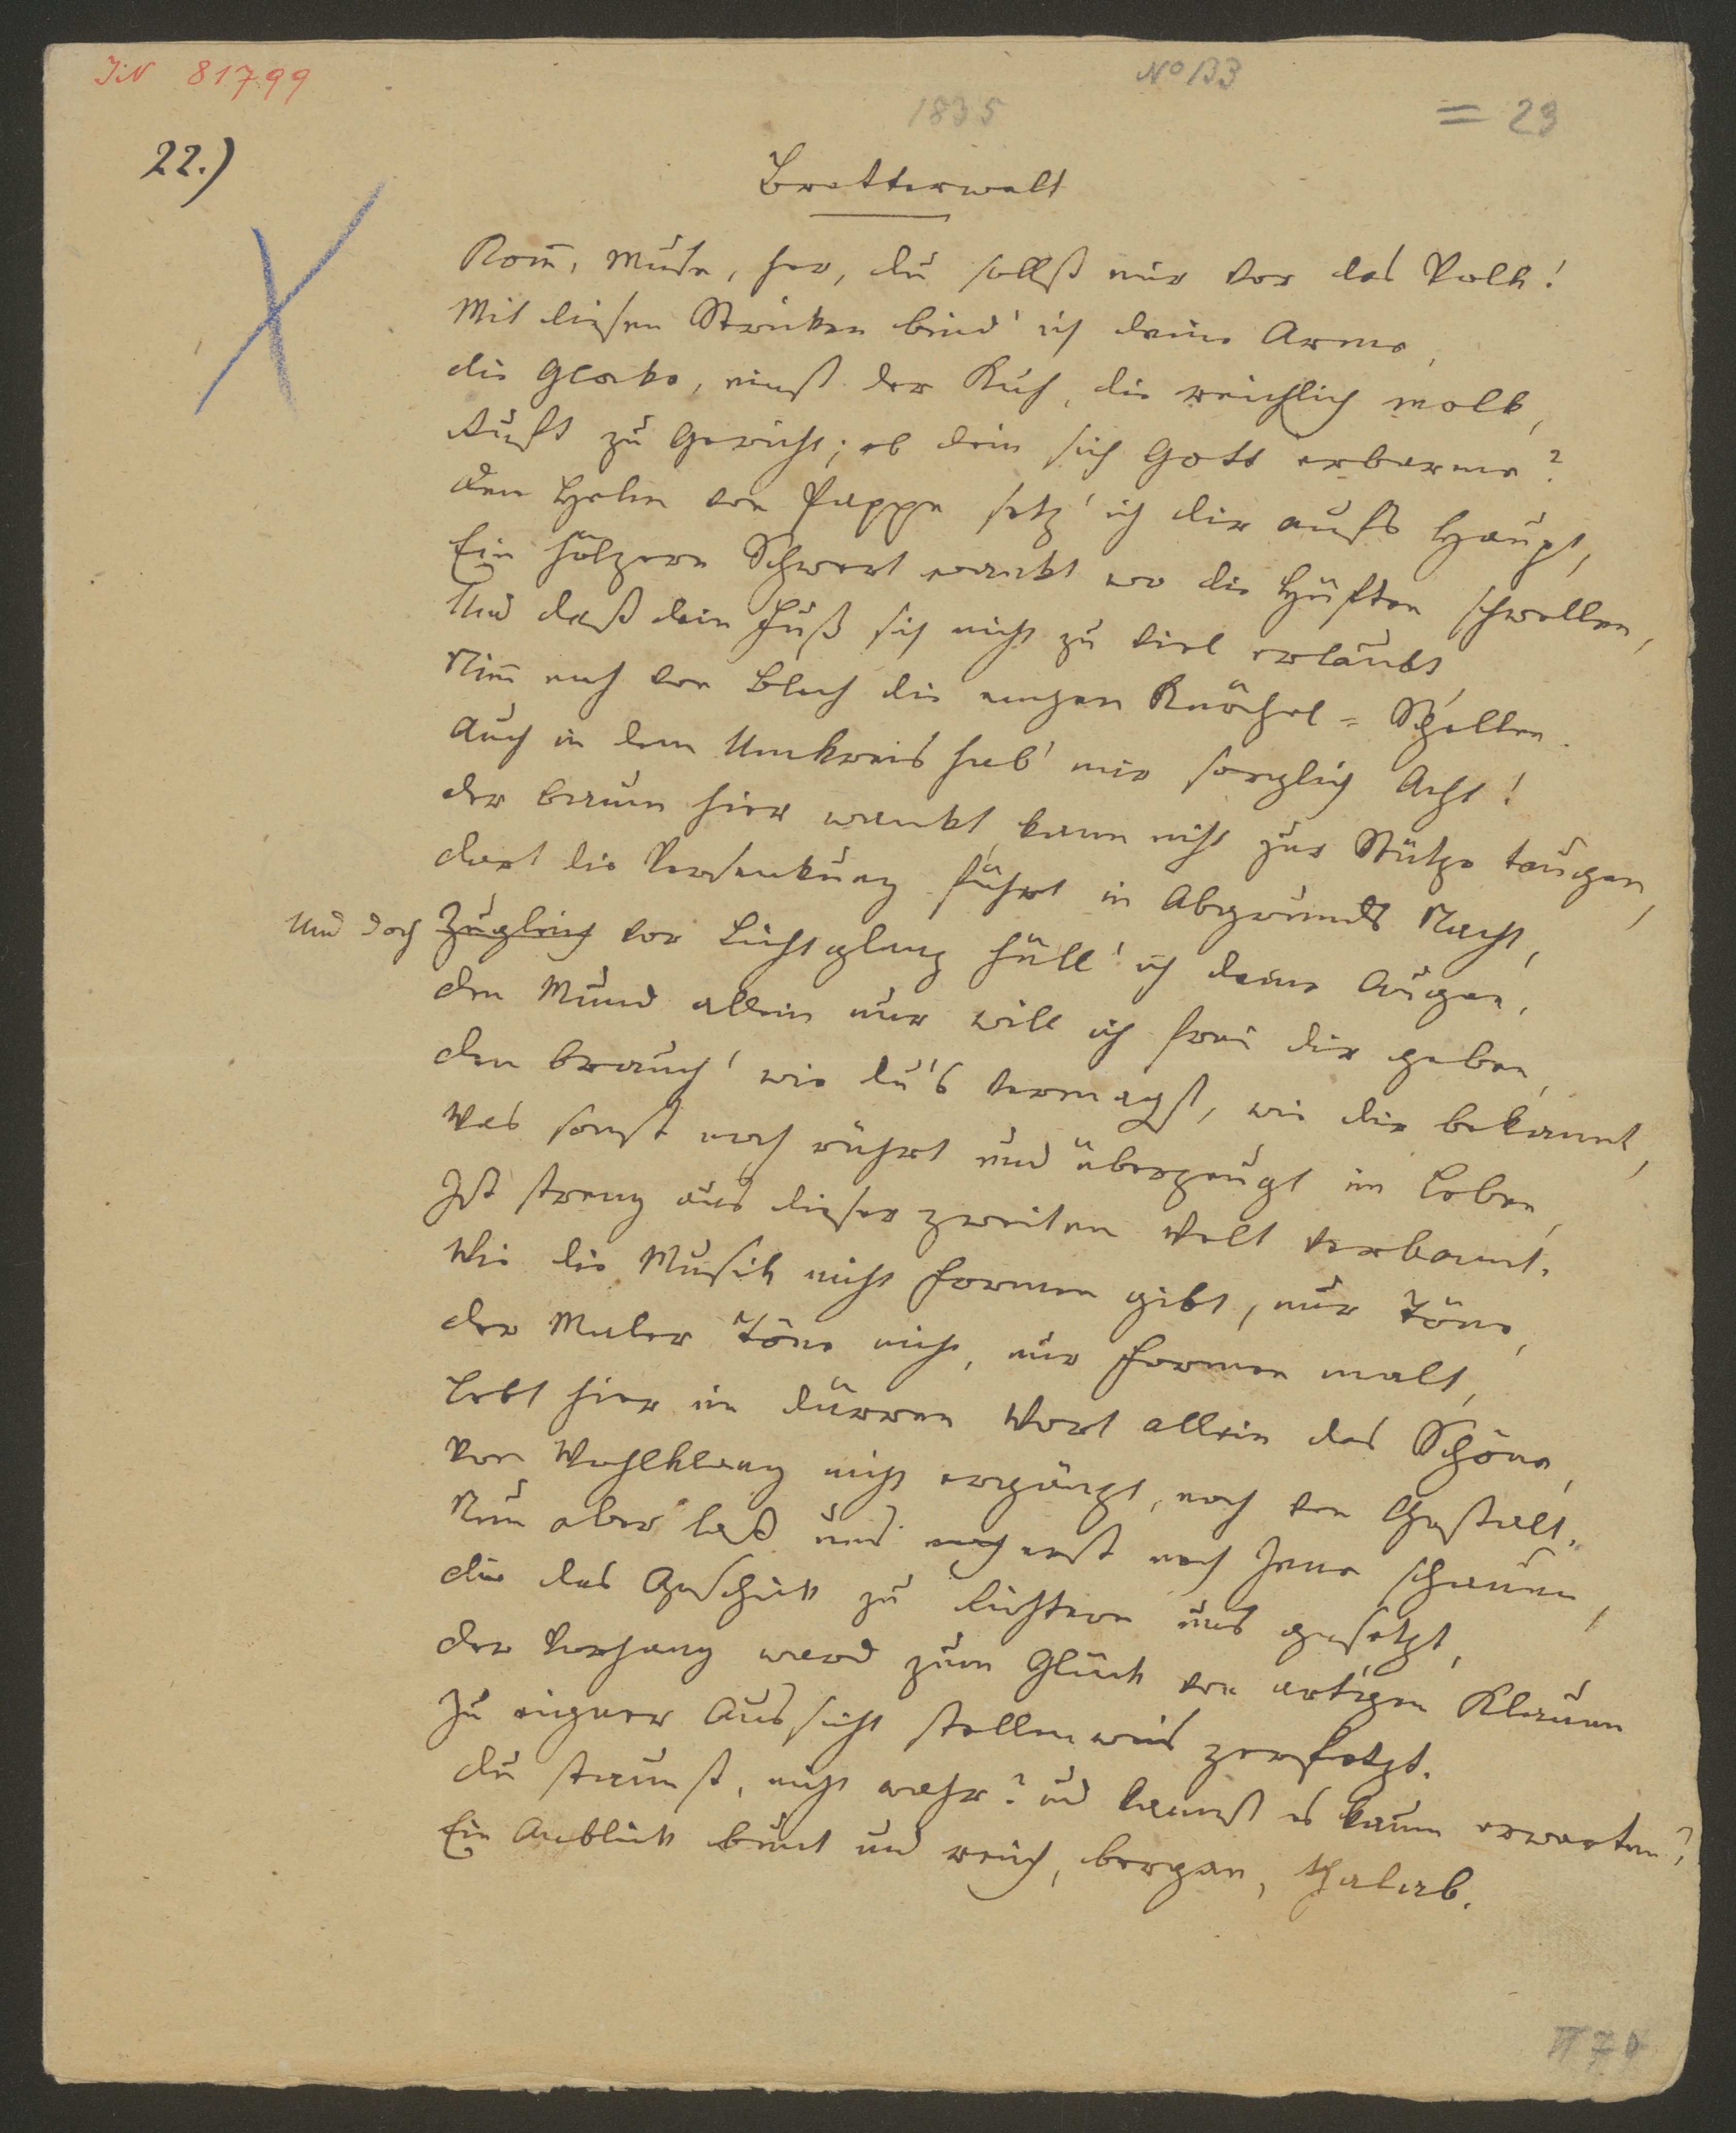 JN 81799
No 133
1835
= 29
22.)
Bretterwelt
Kom̅, Muse, her, du sollst mir vor das Volk!
Mit diesen Stricken bind' ich deine Arme,
die Glocke, einst der Kuh, die reichlich molk,
Ruft zu Gericht; ob dein sich Gott erbarme?
den Helm von Pappe setz' ich dir aufs Haupt,
Ein hölzern Schwert wankt wo die Hüften schwellen,
Und daß dein Fuß sich nicht zu viel erlaubt
Nim̅ noch von Blech die engen Knöchel-Schellen.
Auch in dem Umkreis hab' mir sorglich Acht!
der Baum hier wankt, kann nicht zur Stütze taugen,
dort die Versenkung führt in Abgrunds Nacht,
Und doch Zugleich vor Lichtglanz hüll' ich deine Augen,
den Mund allein nur will ich frei dir geben,
den brauch' wie du's vermagst, wie dir bekannt,
Was sonst noch rührt und überzeugt im Leben,
Ist streng aus dieser zweiten Welt verbannt.
Wie die Musik nicht Formen gibt, nur Töne,
der Maler Töne nicht, nur Formen malt,
Lebt hier im dürren Wort allein das Schöne,
Von Wohlklang nicht ergänzt, noch von Gestalt.
Nun aber laß uns noch erst nach Jene schauen,
die das Geschick zu Richtern uns gesetzt,
der Vorhang ward zum Glück von art'gen Klauen
Zu eigner Aussicht stellenweis zerfetzt.
du staunst, nicht wahr? und kannst es kaum erwarten?
Ein Anblick bunt und reich, bergan, thalab.